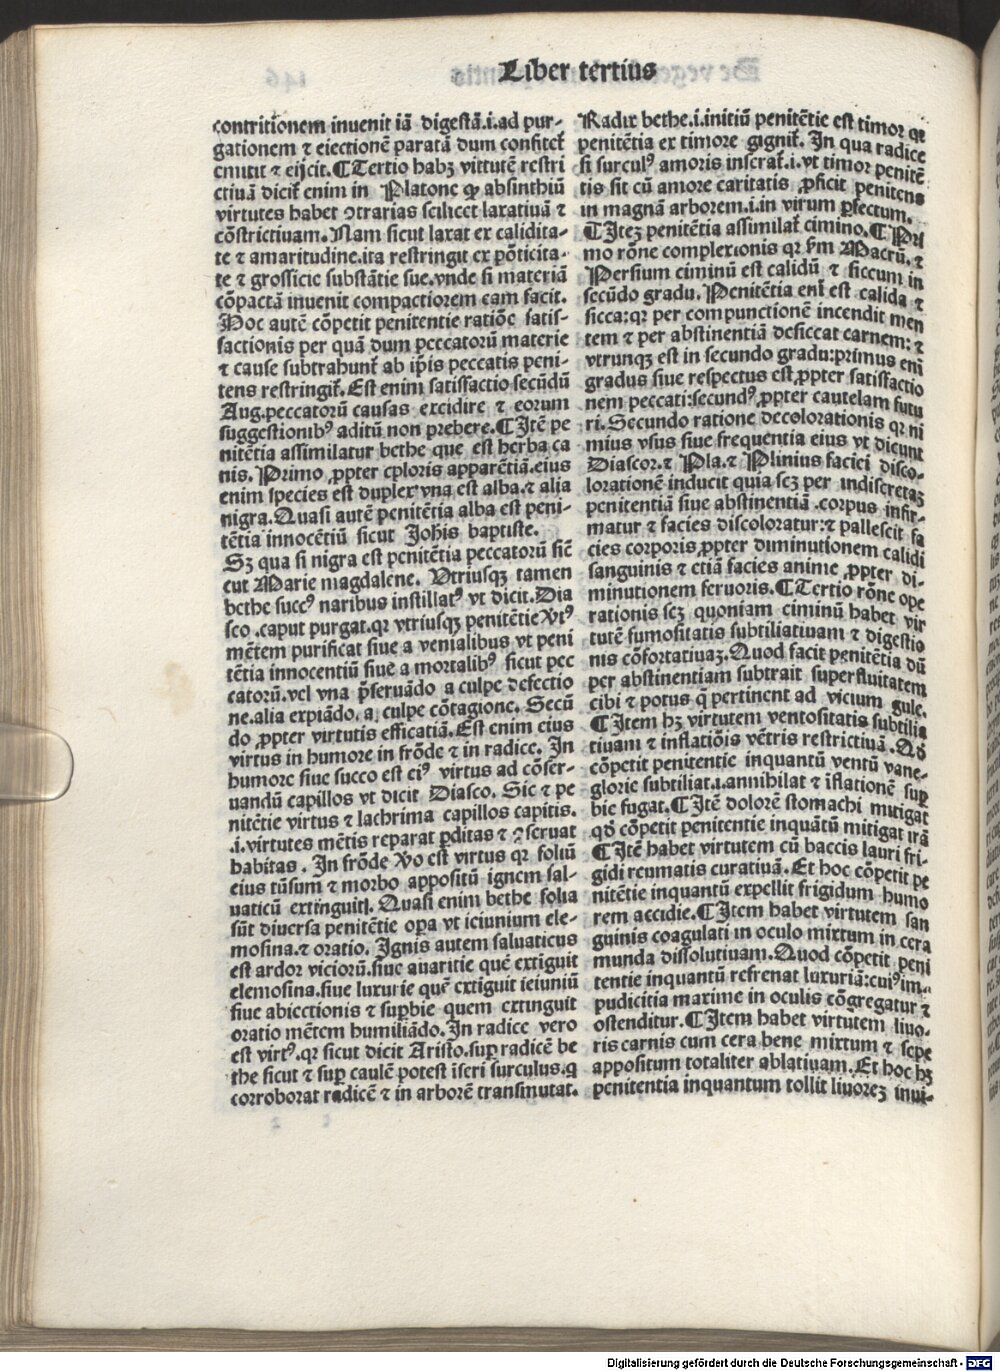 Liber tertius
contritionem inuenit iā digestā.i.ad pur-
gationem ⁊ eiectionē paratā dum confitet᷑
emittit ⁊ eijcit.¶Tertio habꝫ virtutē restri
ctiuā dicit᷑ enim in Platone ꝙ absinthiū
virtutes habet ꝯtrarias scilicet laxatiuā ⁊
cōstrictiuam. Nam sicut laxat ex calidita-
te ⁊ amaritudine.ita restringit ex pōticita-
te ⁊ grossicie substātie sue.vnde si materiā
cōpactā inuenit compactiorem eam facit.
Hoc autē cōpetit penitentie ratiōe satis-
factionis per quā dum peccatorū materie
⁊ cause subtrahunt᷑ ab ip̄is peccatis peni-
tens restringit᷑. Est enim satisfactio secūdū
Aug.peccatorū causas excidere ⁊ eorum
suggestionibꝰ aditū non prebere.¶Itē pe
nitētia assimilatur bethe que est herba ca
nis. Primo ꝓpter coloris apparētiā.eius
enim species est duplex vna est alba.⁊ alia
nigra.Quasi autē penitētia alba est peni-
tētia innocētiū sicut Joh̄is baptiste.
Sꝫ qua si nigra est penitētia peccatorū sic̄
eut Marie magdalene. Vtriusqꝫ tamen
bethe succꝰ naribus instillatꝰ vt dicit.Dia
sco.caput purgat.qꝛ vtriusqꝫ penitētie v̄tꝰ
mētem purificat siue a venialibus vt peni
tētia innocentiū siue a mortalibꝰ sicut pec
catorū.vel vna p̄seruādo a culpe defectio
ne.alia expiādo.a culpe cōtagione. Secū
do ꝓpter virtutis efficatiā.Est enim eius
virtus in humore in frōde ⁊ in radice. In
humore siue succo est eiꝰ virtus ad cōser-
uandū capillos vt dicit Diasco. Sic ⁊ pe
nitētie virtus ⁊ lachrima capillos capitis.
.i.virtutes mētis reparat ꝑditas ⁊ ꝯseruat
habitas. In frōde v̄o est virtus qꝛ foliū
eius tūsum ⁊ morbo appositū ignem sal-
uaticū extinguit. Quasi enim bethe folia
sūt diuersa penitētie oꝑa vt ieiunium ele-
mosina.⁊ oratio. Ignis autem saluaticus
est ardor viciorū.siue auaritie quē extiguit
elemosina.siue luxurie quē extiguit ieiuniū
siue abiectionis ⁊ suꝑbie quem extinguit
oratio mētem humiliādo. In radice vero
est virtꝰ.qꝛ sicut dicit Aristo.suꝑ radicē be
the sicut ⁊ suꝑ caulē potest īseri surculus.q
corroborat radicē ⁊ in arborē transmutat.
Radix bethe.i.initiū penitētie est timor qꝛ
penitētia ex timore gignit᷑. In qua radice
si surculꝰ amoris inserat᷑.i.vt timor penitē
tis sit cū amore caritatis ꝓficit penitens
in magnā arborem.i.in virum ꝑfectum.
¶Iteꝫ penitētia assimilat᷑ cimino.¶Pri
mo rōne complexionis qꝛ ẜm Macrū.⁊
Persium ciminū est calidū ⁊ siccum in
secūdo gradu. Penitētia eni᷑ est calida ⁊
sicca:qꝛ per compunctionē incendit men
tem ⁊ per abstinentiā desiccat carnem:⁊
vtrunqꝫ est in secundo gradu:primus eni᷑
gradus siue respectus est ꝓpter satisfactio
nem peccati:secundꝰ ꝓpter cautelam futu
ri. Secundo ratione decolorationis qꝛ ni
mius vsus siue frequentia eius vt dicunt
Diascor.⁊ Pla.⁊ Plinius faciei disco-
lorationē inducit quia scꝫ per indiscretaꝫ
penitentiā siue abstinentiā.corpus infir-
matur ⁊ facies discoloratur:⁊ pallescit fa
cies corporis ꝓpter diminutionem calidi
sanguinis ⁊ etiā facies anime ꝓpter di-
minutionem feruoris.¶Tertio rōne ope
rationis scꝫ quoniam ciminū habet vir
tutē fumositatis subtiliatiuam ⁊ digestio
nis cōfortatiuaꝫ. Quod facit penitētia dū
per abstinentiam subtrait superfluitatem
cibi ⁊ potus q̄ pertinent ad vicium gule.
¶Item hꝫ virtutem ventositatis subtilia
tiuam ⁊ inflatiōis vētris restrictiuā. Qđ
cōpetit penitentie inquantū ventū vane-
glorie subtiliat.i.annihilat ⁊ īflationē suꝑ
bie fugat.¶Itē dolorē stomachi mitigat
qđ cōpetit penitentie inquātū mitigat irā
¶Itē habet virtutem cū baccis lauri fri-
gidi reumatis curatiuā. Et hoc cōpetit pe
nitētie inquantū expellit frigidum humo
rem accidie.¶Item habet virtutem san
guinis coagulati in oculo mixtum in cera
munda dissolutiuam.Quod cōpetit peni
tentie inquantū refrenat luxuriā:cuiꝰ im-
pudicitia maxime in oculis cōgregatur ⁊
ostenditur.¶Item habet virtutem liuo-
ris carnis cum cera bene mixtum ⁊ sepe
appositum totaliter ablatiuam. Et hoc hꝫ
penitentia inquantum tollit liuoreꝫ inui-
Digitalisierung gefördert durch die Deutsche Forschungsgemeinschaft - DFG